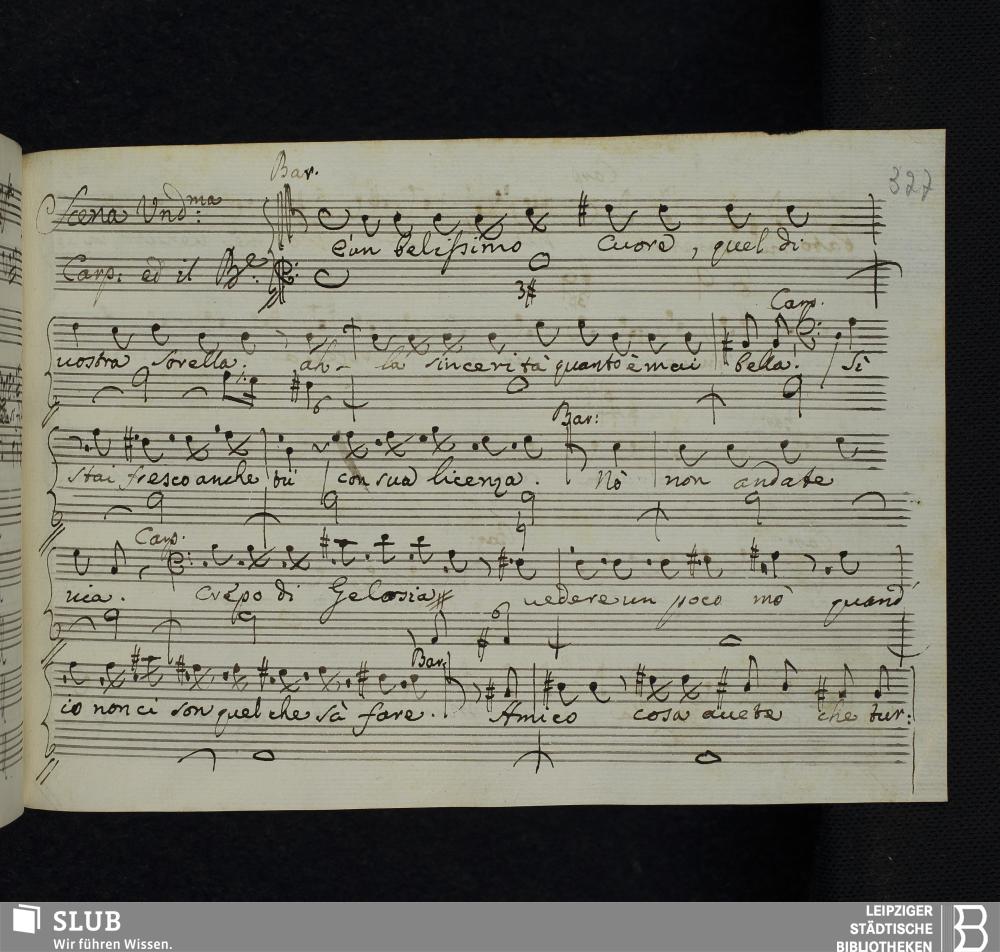 Bar.
327
Scena Und:ma
è un belissimo Cuore, quel di
Carp: ed il Be:
3#
Carp.
vostra sorella, ah la sincerità quanto è mai bella! Sì
6
Bar:
stai fresco anche tù con sua licenza. Nò non andate
Carp.
via. Crepo di Gelosia vedere un poco mò quand'
6
Bar.
io non ci son quel che sà fare. Amico cosa avete che tur:
SLUB
Wir führen Wissen.
LEIPZIGER
STÄDTISCHE
BIBLIOTHEKEN